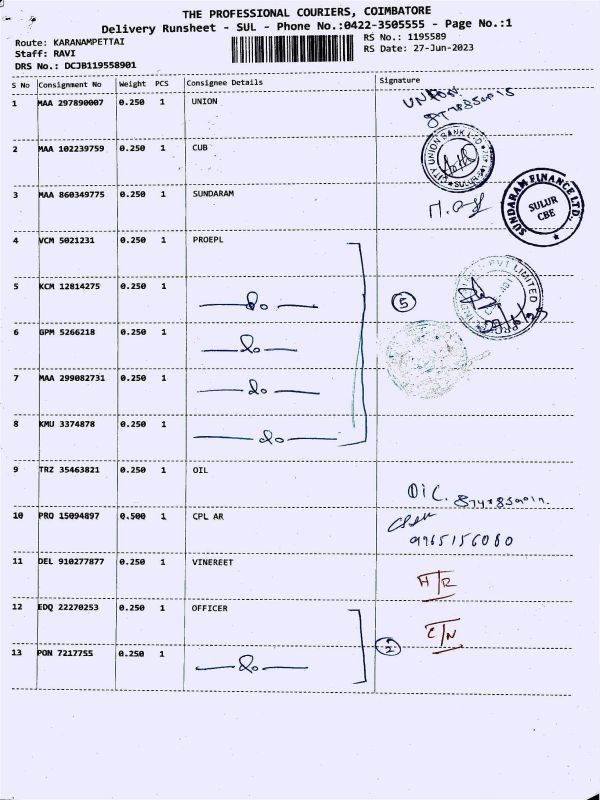 THE PROFESSIONAL COURIERS, COIMBATORE
Delivery Runsheet - SUL - Phone No.:0422-3505555 - Page No.:1
Route: KARANAMPETTAI
RS No.: 1195589
Staff: RAVI
RS Date: 27-Jun-2023
DRS No.: DCJB119558901
S No Consignment No Weight PCS Consignee Details Signature
1 MAA 297890007 0.250 1 UNION UNION
2 MAA 102239759 0.250 1 CUB
CITY UNION BANK LTD SULUR
3 MAA 860349775 0.250 1 SUNDARAM
SUNDARAM FINANCE LTD.
SULUR
CBE
4 VCM 5021231 0.250 1 PROEPL
PVT LIMITED
5 KCM 12814275 0.250 1 do 5
6 GPM 5266218 0.250 1 do
7 MAA 299082731 0.250 1 do
8 KMU 3374878 0.250 1 do
9 TRZ 35463821 0.250 1 OIL
10 PRO 15094897 0.500 1 CPL AR
9965156080
11 DEL 910277877 0.250 1 VINEREET
12 EDQ 22270253 0.250 1 OFFICER
13 PON 7217755 0.250 1 do 2